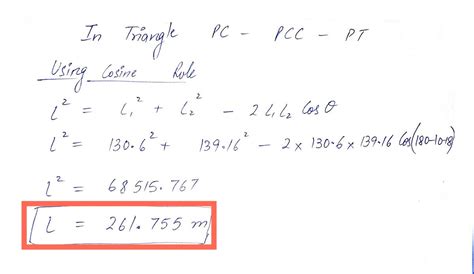 In Triangle PC - PCC - PT
Using Cosine Rule
l² = L₁² + L₂² - 2 L₁L₂ Cos θ
l² = 130.6² + 139.16² - 2 × 130.6 × 139.16 Cos(180-10-18)
l² = 68515.767
l = 261.755 m